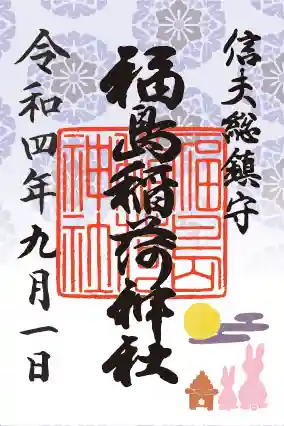 信夫総鎮守
福島稲荷神社
令和四年九月一日
福島稲荷神社